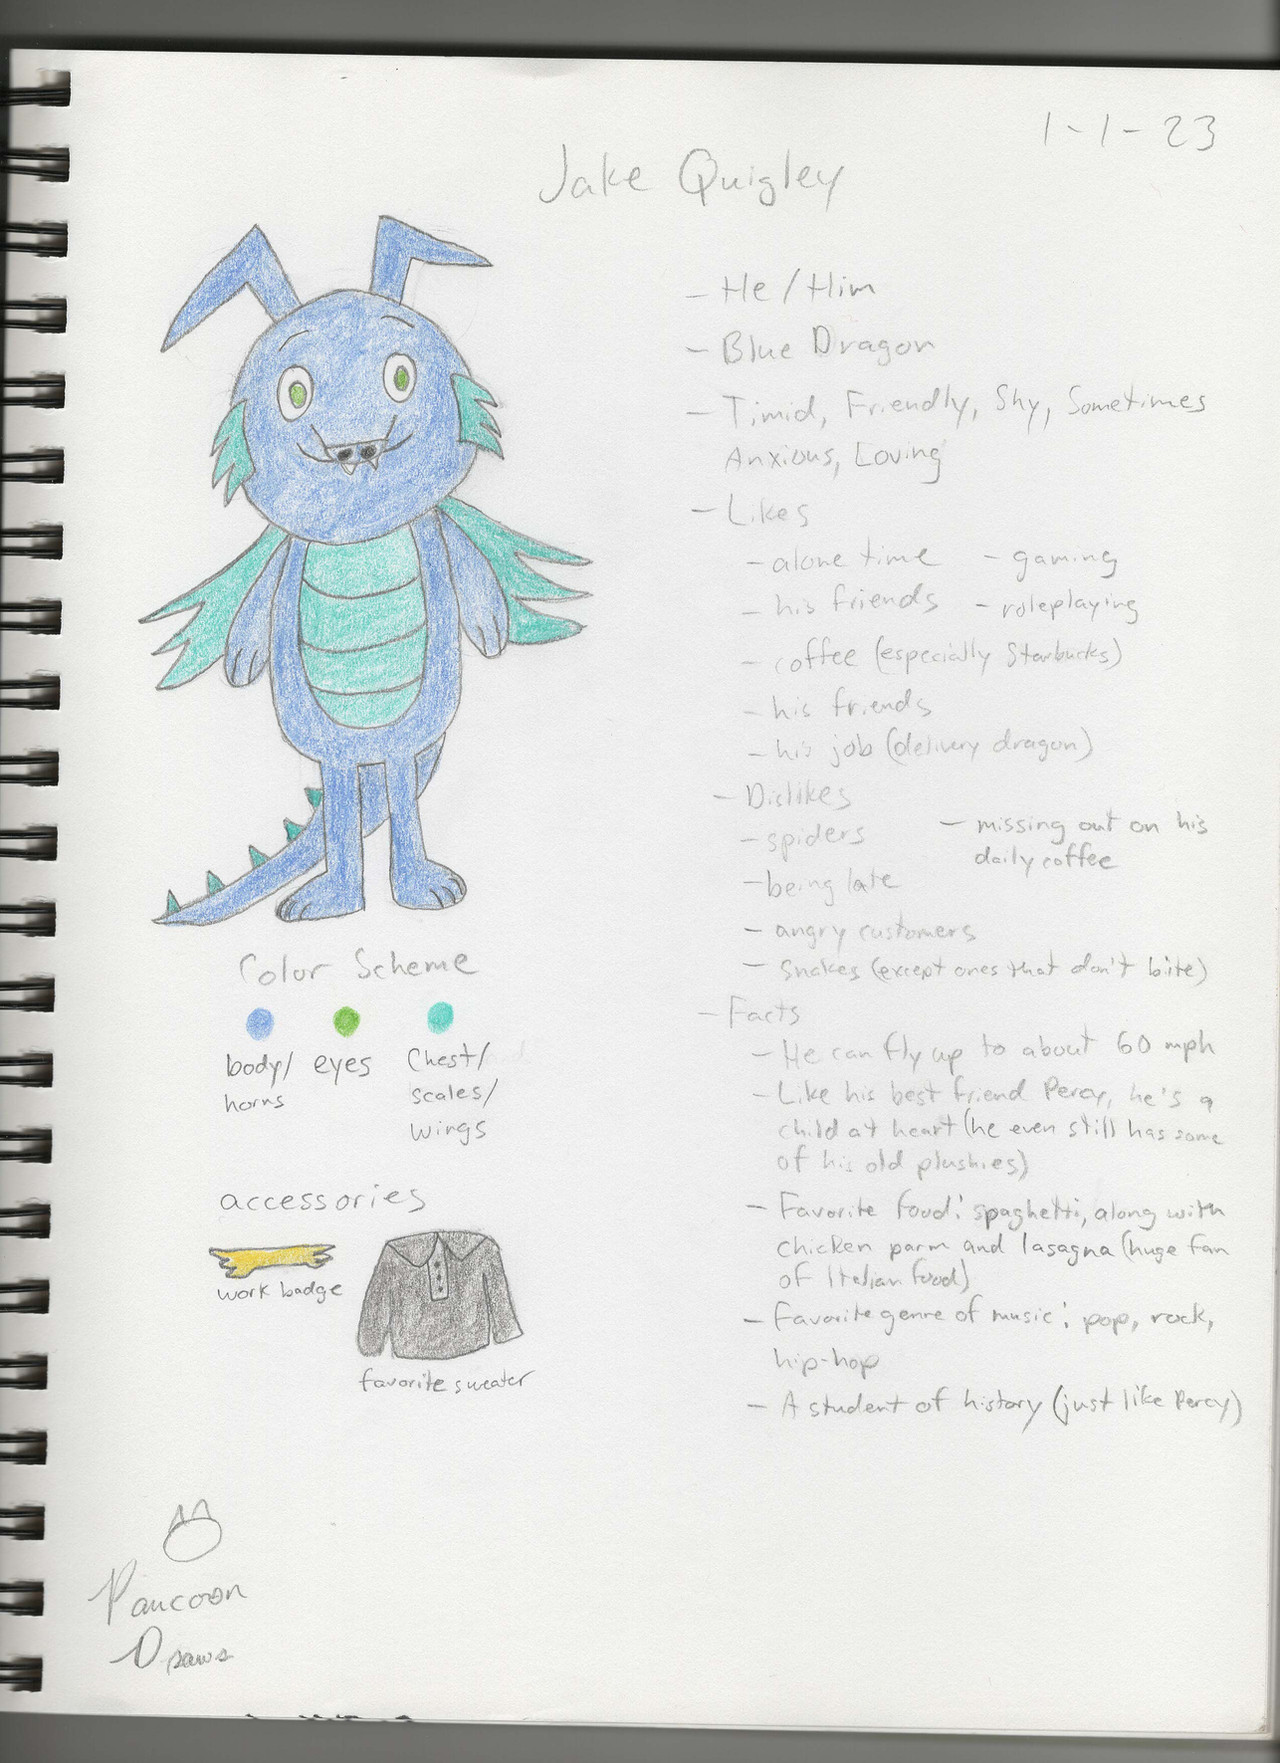 1-1-23
Jake Quigley
- He/Him
- Blue Dragon
- Timid, Friendly, Shy, Sometimes
Anxious, Loving
- Likes
- alone time - gaming
- his friends - roleplaying
- coffee (especially Starbucks)
- his friends
- his job (delivery dragon)
- Dislikes
- spiders
- missing out on his
daily coffee
- being late
- angry customers
- snakes (except ones that don't bite)
- Facts
- He can fly up to about 60 mph
- Like his best friend Percy, he's a
child at heart (he even still has some
of his old plushies)
- Favorite food: spaghetti, along with
chicken parm and lasagna (huge fan
of Italian food)
- Favorite genre of music: pop, rock,
hip-hop
- A student of history (just like Percy)
Color Scheme
body/
horns
eyes
Chest/
scales/
wings
accessories
work badge
favorite sweater
Paucoon
Draws